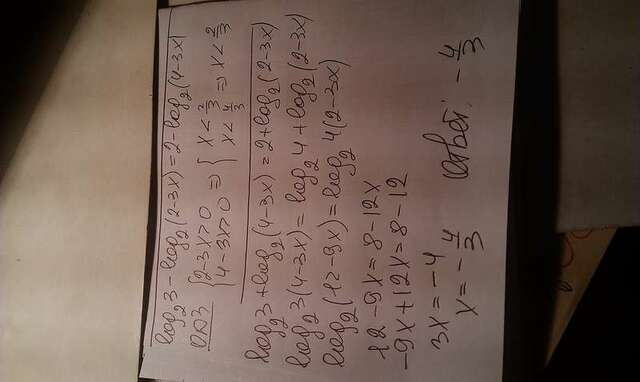 log₂3-log₂(2-3x)=2-log₂(4-3x)
ОДЗ
{2-3x>0 => {x<2/3
{4-3x>0 => {x<4/3 => x<2/3
log₂3+log₂(4-3x)=2+log₂(2-3x)
log₂3(4-3x)=log₂4+log₂(2-3x)
log₂(12-9x)=log₂4(2-3x)
12-9x=8-12x
-9x+12x=8-12
3x=-4
x=-4/3 Ответ: -4/3